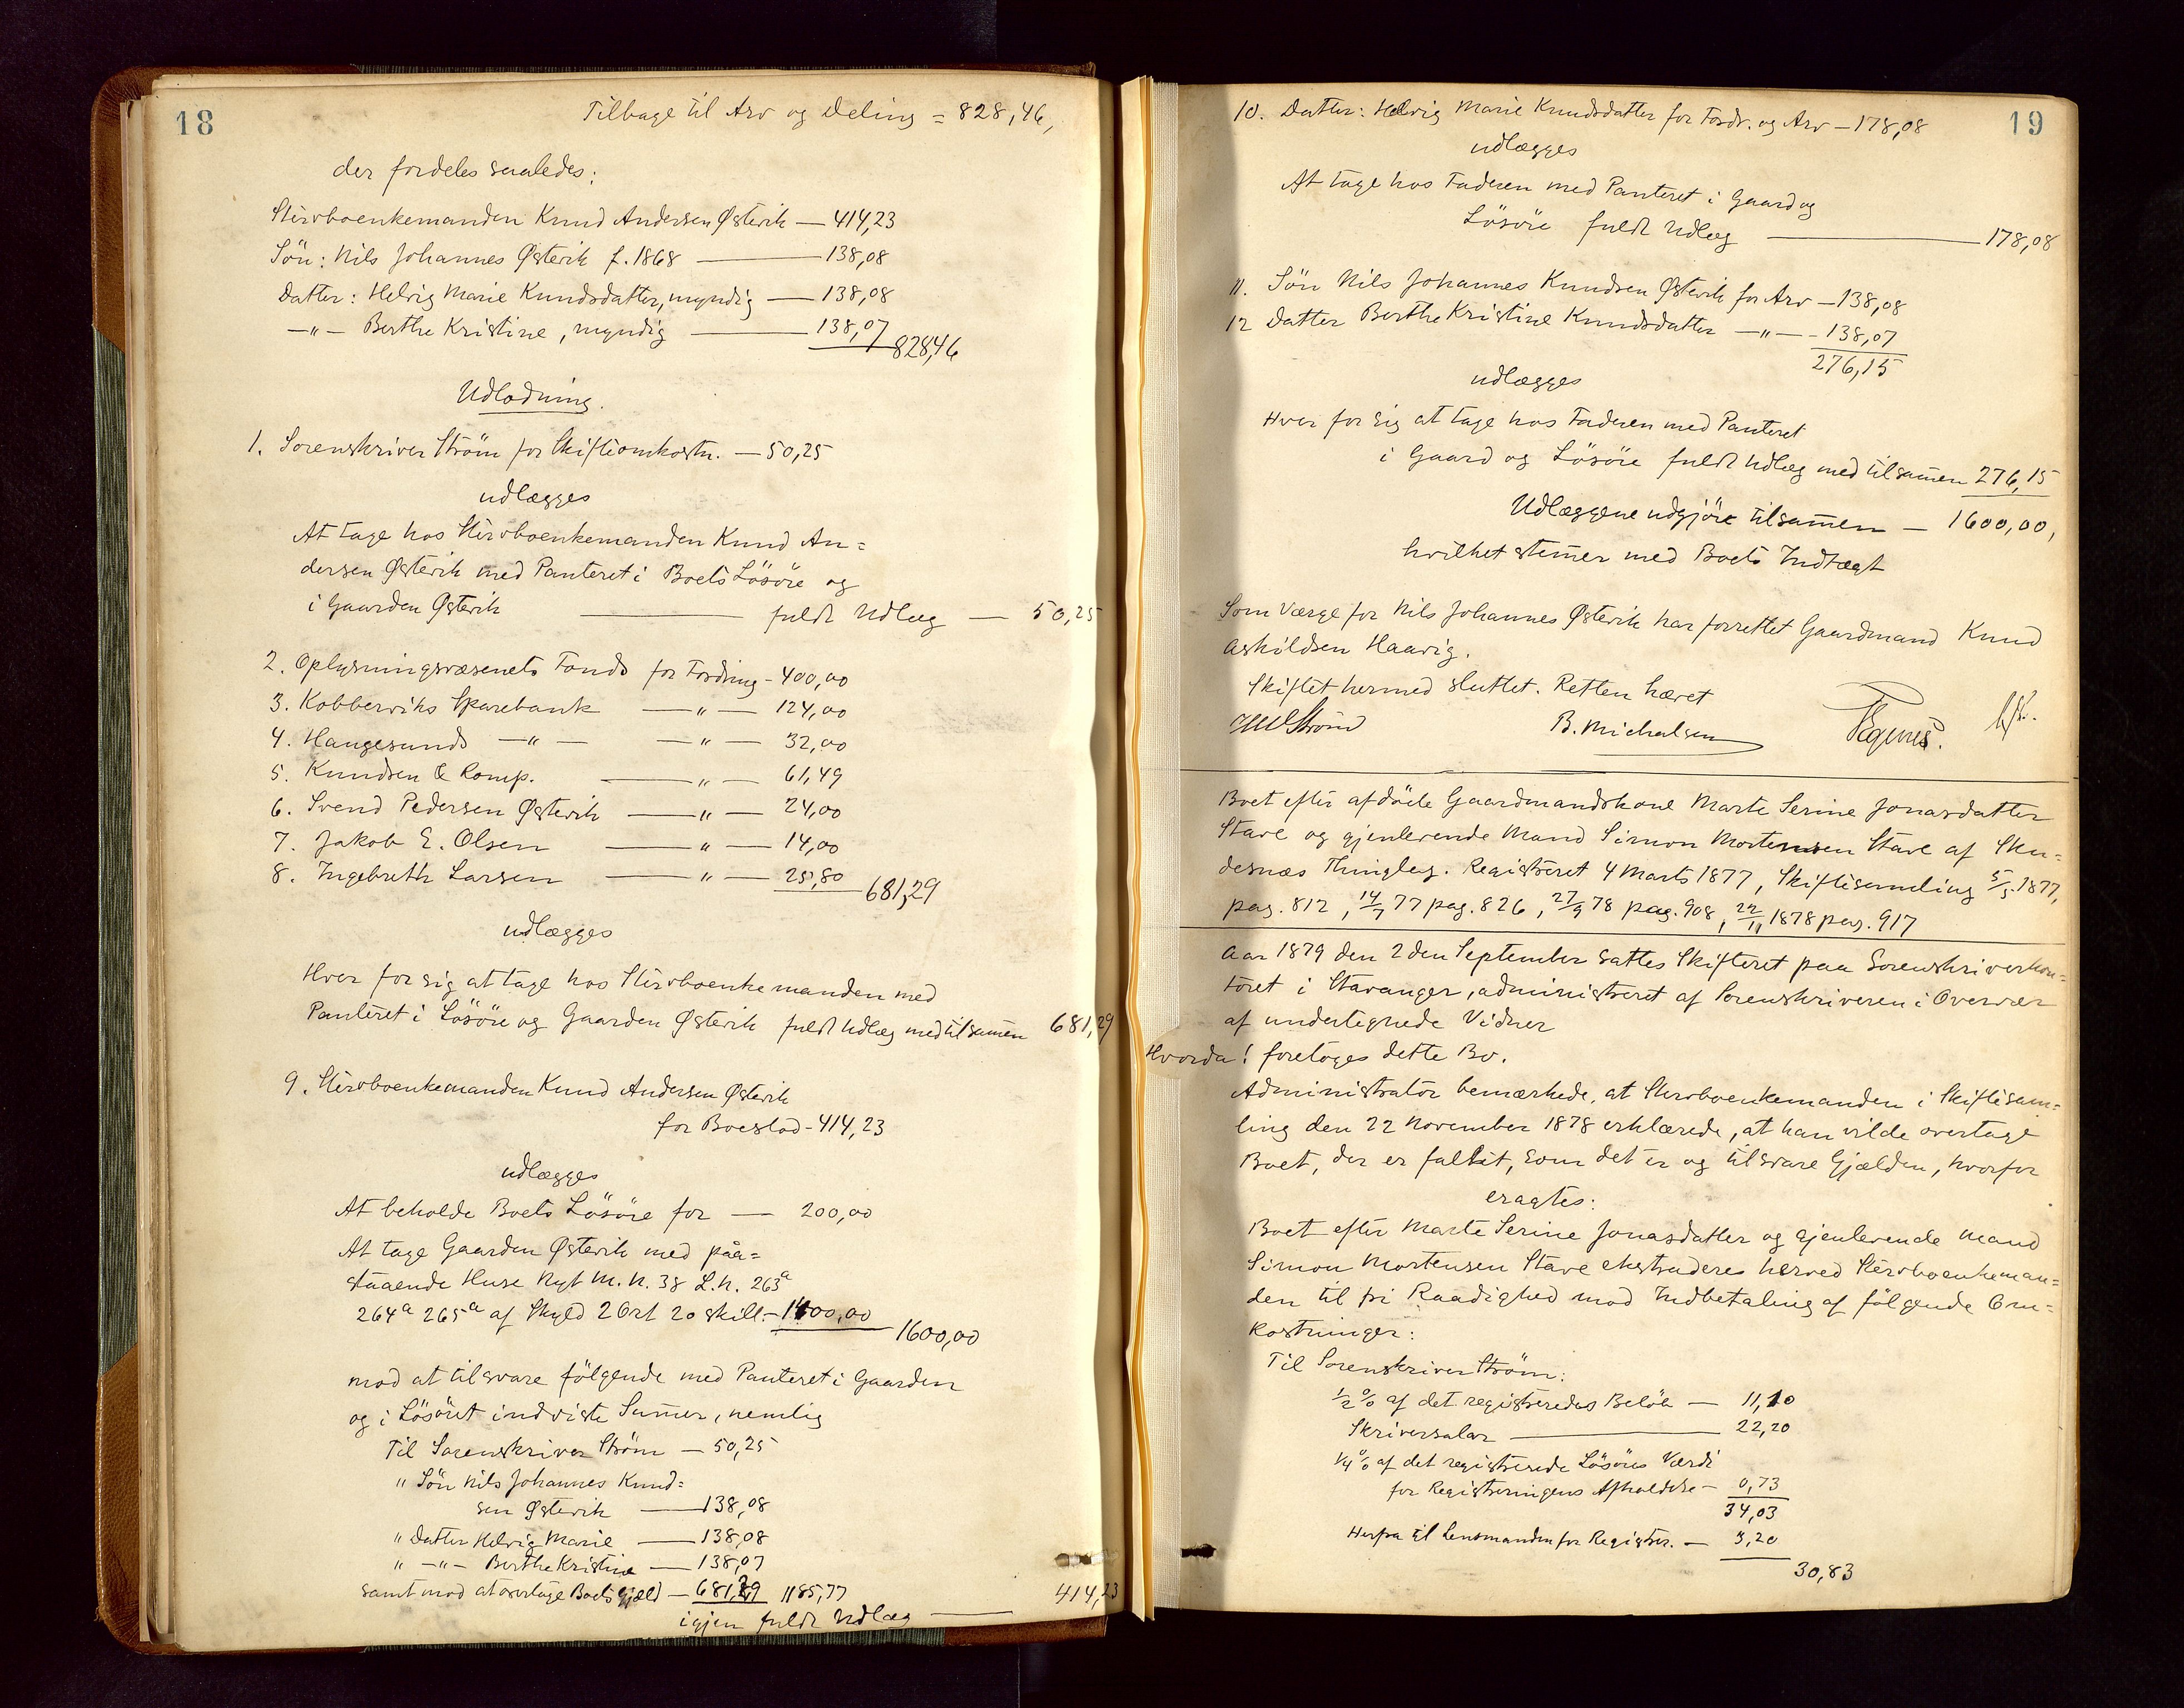 18
Tilbage til Arv og Deling = 828,46,
der fordeles saaledes:
Stervboenkemanden Knud Andersen Østevik — 414,23
Søn: Nils Johannes Østevik f. 1868 — 138,08
Datter: Helvig Marie Knudsdatter, myndig — 138,08
—"— Berthe Kristine, myndig — 138,07 828,46
Udlodning.
1. Sorenskriver Strøm for Skifteomkostn. — 50,25
udlægges
At tage hos Stervboenkemanden Knud An=
dersen Østevik med Panteret i Boets Løsøre og
i Gaarden Østevik — fuldt Udlæg — 50,25
2. Oplysningsvæsenets Fonds for Fordring - 400,00
3. Kobberviks Sparebank —"— 124,00
4. Haugesunds —"— —"— 32,00
5. Knudsen & Komp. —"— 61,49
6. Svend Pedersen Østevik —"— 24,00
7. Jakob E. Olsen —"— 14,00
8. Ingebreth Larsen —"— 25,80 681,29
udlægges
Hver for sig at tage hos Stervboenkemanden med
Panteret i Løsøre og Gaarden Østevik fuldt Udlæg med tilsamen 681,29
9. Stervboenkemanden Knud Andersen Østevik
for Boeslod - 414,23
udlægges
At beholde Boets Løsøre for — 200,00
At tage Gaarden Østevik med paa=
staaende Huse Nyt M. N. 38 L. N. 263a
264a 265a af Skyld 2 Ort 20 skill. - 1400,00 1600,00
mod at tilsvare følgende med Panteret i Gaarden
og i Løsøret indviste Sumer, nemlig
Til Sorenskriver Strøm — 50,25
" Søn Nils Johannes Knud=
sen Østevik — 138,08
" Datter Helvig Marie — 138,08
" —"— Berthe Kristine — 138,07
samt mod at overtage Boets Gjæld — 681,29 1185,77
igjen fuldt Udlæg — 414,23
19
10. Datter: Helvig Marie Knudsdatter for Fordr. og Arv — 178,08
udlægges
At tage hos Faderen med Panteret i Gaard og
Løsøre fuldt Udlæg — 178,08
11. Søn Nils Johannes Knudsen Østevik for Arv — 138,08
12 Datter Berthe Kristine Knudsdatter —"— - 138,07
276,15
udlægges
Hver for sig at tage hos Faderen med Panteret
i Gaard og Løsøre fuldt Udlæg med tilsamen 276,15
Udlæggene udgjøre tilsamen — 1600,00,
hvilket stemer med Boets Indtægt
Som Værge for Nils Johannes Østevik har forrettet Gaardmand Knud
Askildsen Haavig.
Skiftet hermed sluttet. Retten hævet
Strøm B. Michalsen
Boet efter afdøde Gaardmandskone Marte Serine Jonasdatter
Stave og gjenlevende Mand Simon Mortensen Stave af Sku=
desnæs Thinglag. Registreret 4 Marts 1877, Skiftesamling 5/5 1877,
pag. 812, 14/7 77 pag. 826, 27/9 78 pag. 908, 22/11 1878 pag. 917
Aar 1879 den 2den September sattes Skifteret paa Sorenskriverkon=
toret i Stavanger, administreret af Sorenskriveren i Overvær
af undertegnede Vidner
Hvorda! foretoges dette Bo.
Administrator bemærkede, at Stervboenkemanden i Skiftesam=
ling den 22 November 1878 erklærede, at han vilde overtage
Boet, der er fallit, som det er og tilsvare Gjælden, hvorfor
eragtes:
Boet efter Marte Serine Jonasdatter og gjenlevende Mand
Simon Mortensen Stave ekstraderes herved Stervboenkeman=
den til fri Raadighed mod Indbetaling af følgende Om=
kostninger:
Til Sorenskriver Strøm:
1/2 % af det registreredes Beløb — 11,10
Skriversalær — 22,20
1/4 % af det registrerede Løsøres Værdi
for Registreringens Afholdelse — 0,73
34,03
Herfra til Lensmanden for Registr. — 3,20
30,83